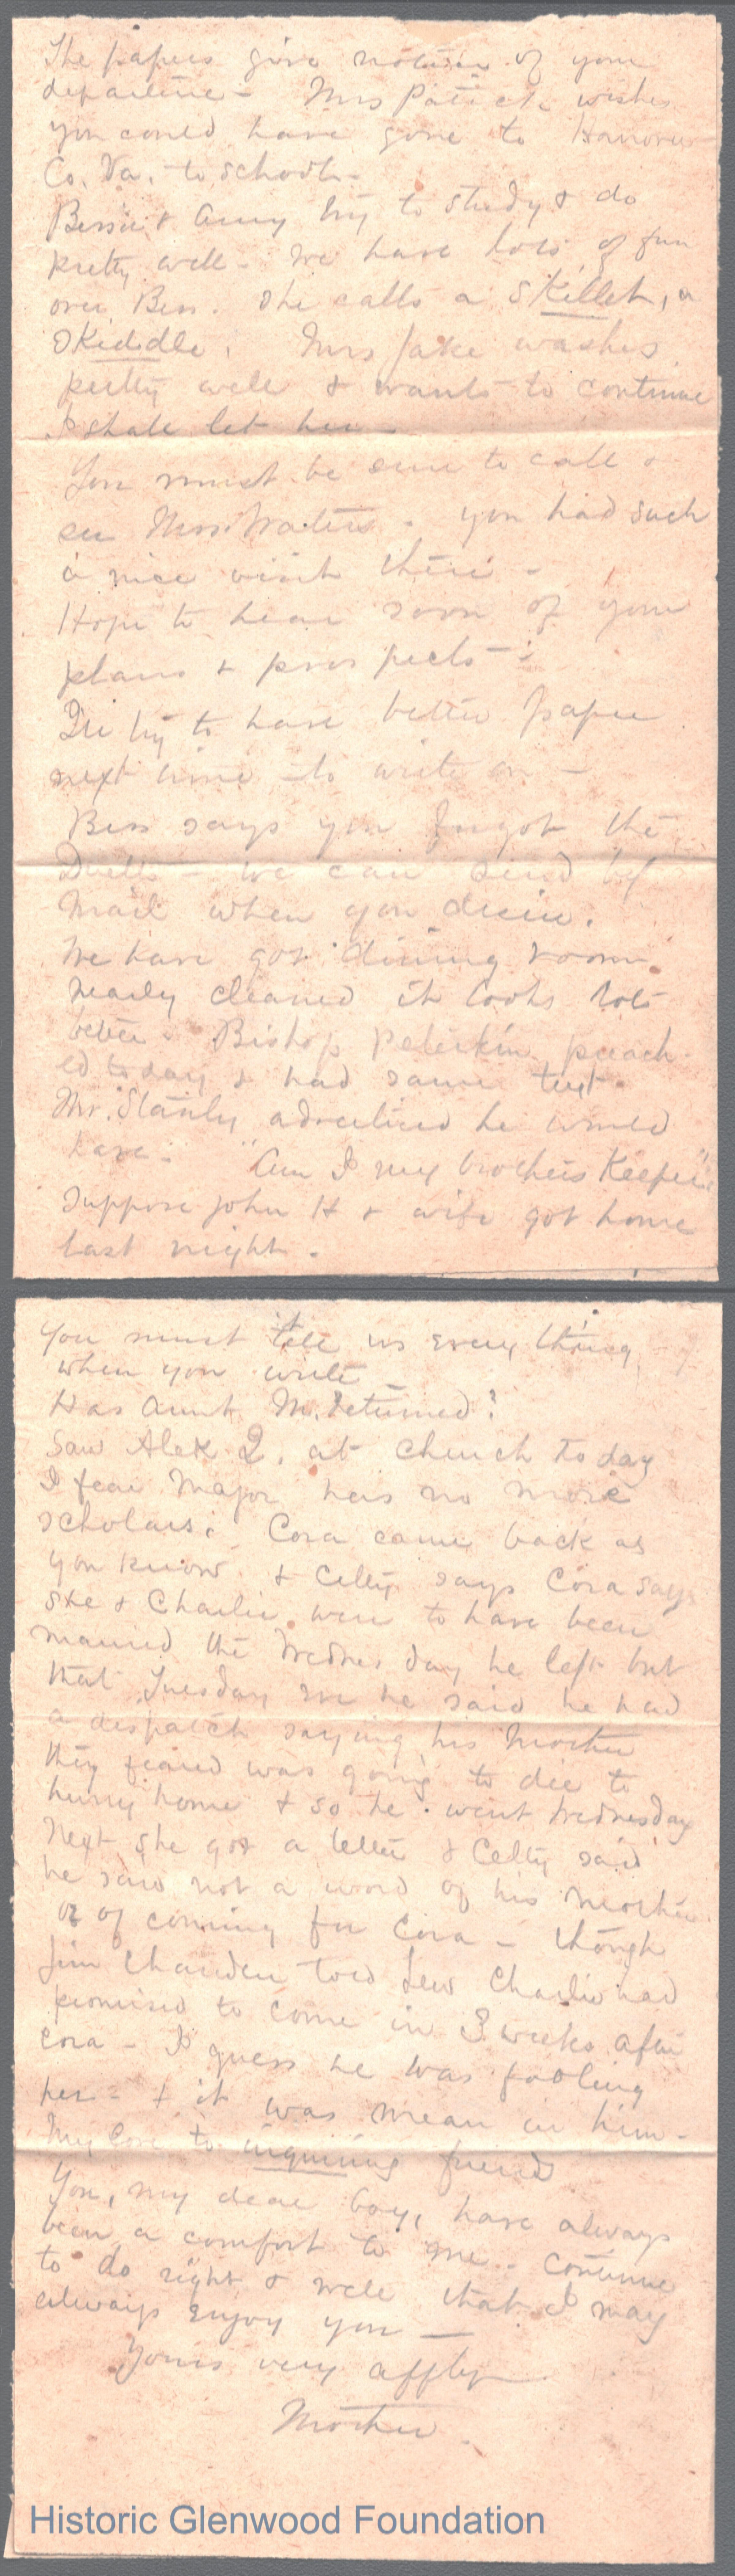 The papers give notice of your
departure - Mrs Patrick wishes
you could have gone to Hanover
Co. Va. to school -
Bessie & Amy try to study & do
pretty well - We have lots of fun
over Bess. She calls a Skillet, a
Skiddle. Mrs Jake washes
pretty well & wants to continue
I shall let her -
You must be sure to call &
see Mrs. Waters. You had such
a nice visit there -
Hope to hear soon of your
plans & prospects -
I'll try to have better paper
next time to write on -
Bess says you forgot the
- we can send by
mail when you desire.
We have got dining room
nearly cleaned it looks lots
better. Bishop Peterkin preach-
ed today & had same text
Mr. Stanly advertised he would
have - "Am I my brothers Keeper".
Suppose John H & wife got home
last night.
You must tell us every thing
when you write -
Has Aunt M. returned?
Saw Alek Q. at church today
I fear Major has no more
scholars. Cora came back as
you know & Celty says Cora says
she & Charlie were to have been
married the Wednesday he left but
that Tuesday eve he said he had
a dispatch saying his Mother
they feared was going to die to
hurry home & so he went Wednesday
Next she got a letter & Celty said
he said not a word of his Mother
or of coming for Cora - though
Jim told Lew Charlie had
promised to come in 3 weeks after
Cora - I guess he was fooling
her - & it was mean in him -
My love to inquiring friends
You, my dear boy, have always
been a comfort to me. Continue
to do right & well that I may
always enjoy you -
Yours very affly
Mother.
Historic Glenwood Foundation